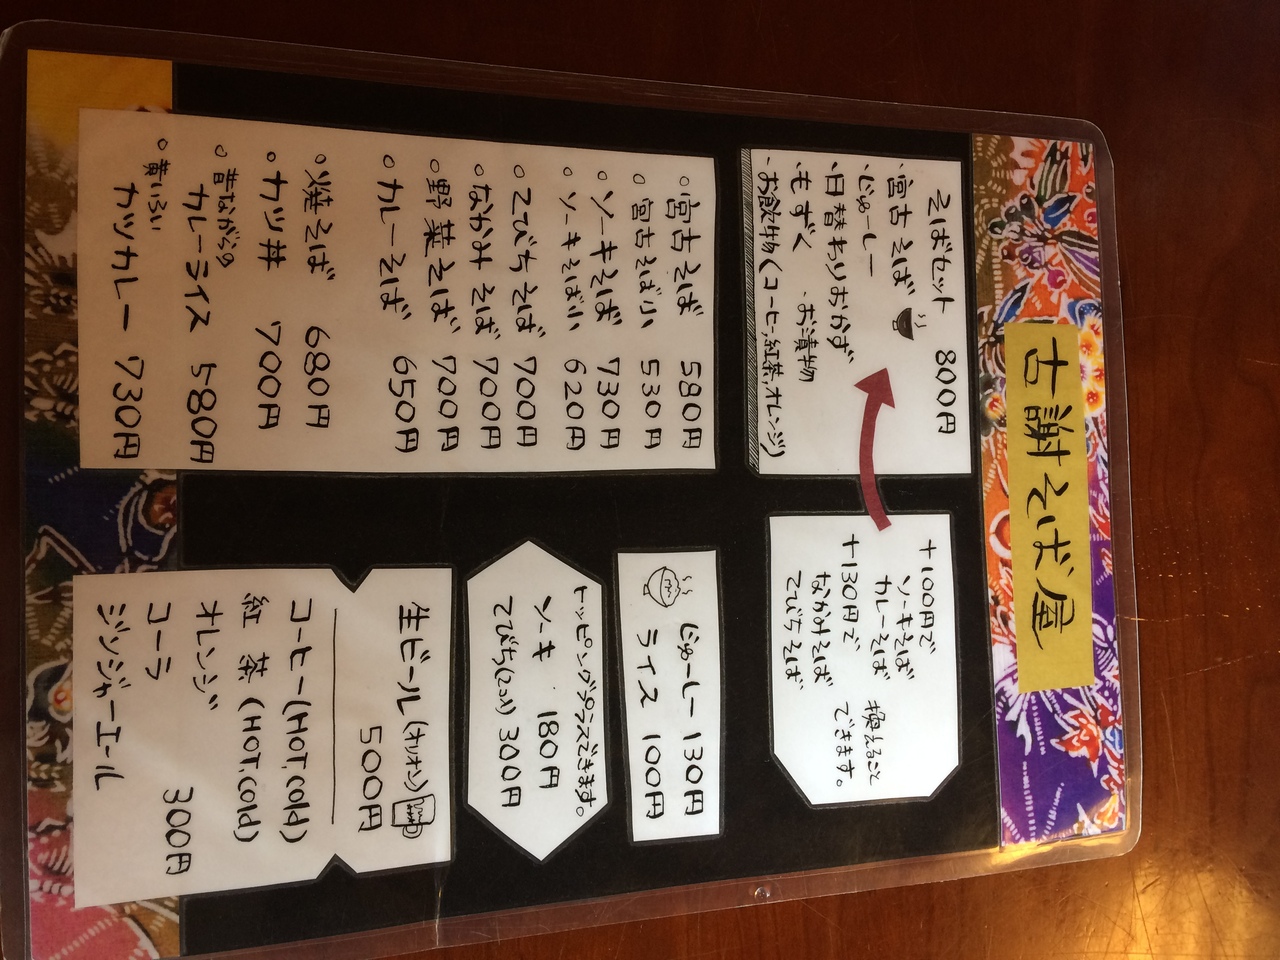 古謝そば屋
そばセット 800円
・宮古そば
・じゅーしー
・日替わりおかず
・もずく ・お漬物
・お飲物(コーヒー,紅茶,オレンジ)
+100円で
ソーキそば
カレーそば
+130円で
なかみそば
てびちそば
換えること
できます。
○宮古そば 580円
○宮古そば小 530円
○ソーキそば 730円
○ソーキそば小 620円
○てびちそば 700円
○なかみそば 700円
○野菜そば 700円
○カレーそば 650円
○焼そば 680円
○カツ丼 700円
○昔ながらの
カレーライス 580円
○黄いろい
カツカレー 730円
じゅーしー 130円
ライス 100円
トッピングプラスできます。
ソーキ 180円
てびち(2コ入) 300円
生ビール(オリオン)
500円
コーヒー(HOT.COld)
紅茶(HOT.COld)
オレンジ
コーラ 300円
ジンジャーエール